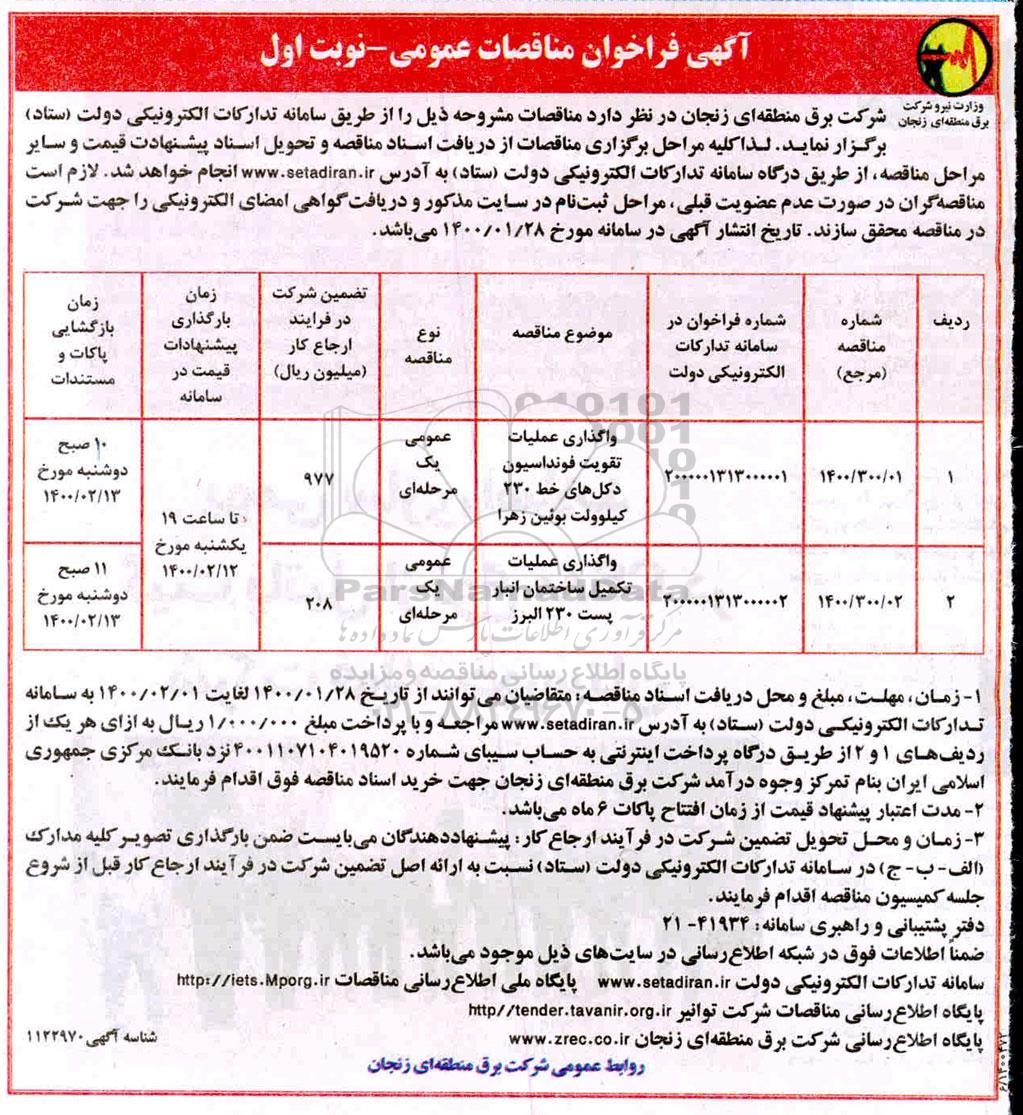 آگهی فراخوان مناقصات عمومی-نوبت اول
وزارت نیرو شرکت
برق منطقه‌ای زنجان
شرکت برق منطقه‌ای زنجان در نظر دارد مناقصات مشروحه ذیل را از طریق سامانه تدارکات الکترونیکی دولت (ستاد)
برگزار نماید. لذا کلیه مراحل برگزاری مناقصات از دریافت اسناد مناقصه و تحویل اسناد پیشنهادت قیمت و سایر
مراحل مناقصه، از طریق درگاه سامانه تدارکات الکترونیکی دولت (ستاد) به آدرس www.setadiran.ir انجام خواهد شد. لازم است
مناقصه‌گران در صورت عدم عضویت قبلی، مراحل ثبت‌نام در سایت مذکور و دریافت گواهی امضای الکترونیکی را جهت شرکت
در مناقصه محقق سازند. تاریخ انتشار آگهی در سامانه مورخ ۱۴۰۰/۰۱/۲۸ می‌باشد.
ردیف
شماره
مناقصه
(مرجع)
شماره فراخوان در
سامانه تدارکات
الکترونیکی دولت
موضوع مناقصه
نوع
مناقصه
تضمین شرکت
در فرایند
ارجاع کار
(میلیون ریال)
زمان
بارگذاری
پیشنهادات
قیمت در
سامانه
زمان
بازگشایی
پاکات و
مستندات
۱
۱۴۰۰/۳۰۰/۰۱
۲۰۰۰۰۰۱۳۱۳۰۰۰۰۰۱
واگذاری عملیات
تقویت فونداسیون
دکل‌های خط ۲۳۰
کیلوولت بوئین زهرا
عمومی
یک
مرحله‌ای
۹۷۷
تا ساعت ۱۹
یکشنبه مورخ
۱۴۰۰/۰۲/۱۲
۱۰ صبح
دوشنبه مورخ
۱۴۰۰/۰۲/۱۳
۲
۱۴۰۰/۳۰۰/۰۲
۲۰۰۰۰۰۱۳۱۳۰۰۰۰۰۲
واگذاری عملیات
تکمیل ساختمان انبار
پست ۲۳۰ البرز
عمومی
یک
مرحله‌ای
۲۰۸
۱۱ صبح
دوشنبه مورخ
۱۴۰۰/۰۲/۱۳
ParsNamadData
مرکز فرآوری اطلاعات پارس نماد داده‌ها
پایگاه اطلاع رسانی مناقصه و مزایده
۰۲۱-۸۸۳۴۹۶۷۰-۵
۱- زمان، مهلت، مبلغ و محل دریافت اسناد مناقصه: متقاضیان می‌توانند از تاریخ ۱۴۰۰/۰۱/۲۸ لغایت ۱۴۰۰/۰۲/۰۱ به سامانه
تدارکات الکترونیکی دولت (ستاد) به آدرس www.setadiran.ir مراجعه و با پرداخت مبلغ ۱/۰۰۰/۰۰۰ ریال به ازای هر یک از
ردیف‌های ۱ و ۲ از طریق درگاه پرداخت اینترنتی به حساب سیبای شماره ۴۰۰۱۱۰۷۱۰۴۰۱۹۵۲۰ نزد بانک مرکزی جمهوری
اسلامی ایران بنام تمرکز وجوه درآمد شرکت برق منطقه‌ای زنجان جهت خرید اسناد مناقصه فوق اقدام فرمایند.
۲- مدت اعتبار پیشنهاد قیمت از زمان افتتاح پاکات ۶ ماه می‌باشد.
۳- زمان و محل تحویل تضمین شرکت در فرآیند ارجاع کار: پیشنهاددهندگان می‌بایست ضمن بارگذاری تصویر کلیه مدارک
(الف- ب- ج) در سامانه تدارکات الکترونیکی دولت (ستاد) نسبت به ارائه اصل تضمین شرکت در فرآیند ارجاع کار قبل از شروع
جلسه کمیسیون مناقصه اقدام فرمایند.
دفتر پشتیبانی و راهبری سامانه: ۴۱۹۳۴- ۲۱
ضمنا اطلاعات فوق در شبکه اطلاع‌رسانی در سایت‌های ذیل موجود می‌باشد.
سامانه تدارکات الکترونیکی دولت www.setadiran.ir پایگاه ملی اطلاع‌رسانی مناقصات http://iets.Mporg.ir
پایگاه اطلاع‌رسانی مناقصات شرکت توانیر http//tender.tavanir.org.ir
پایگاه اطلاع‌رسانی شرکت برق منطقه‌ای زنجان www.zrec.co.ir
شناسه آگهی ۱۱۲۲۹۷۰
روابط عمومی شرکت برق منطقه‌ای زنجان
۶/۱۴۰۰۴۷۲